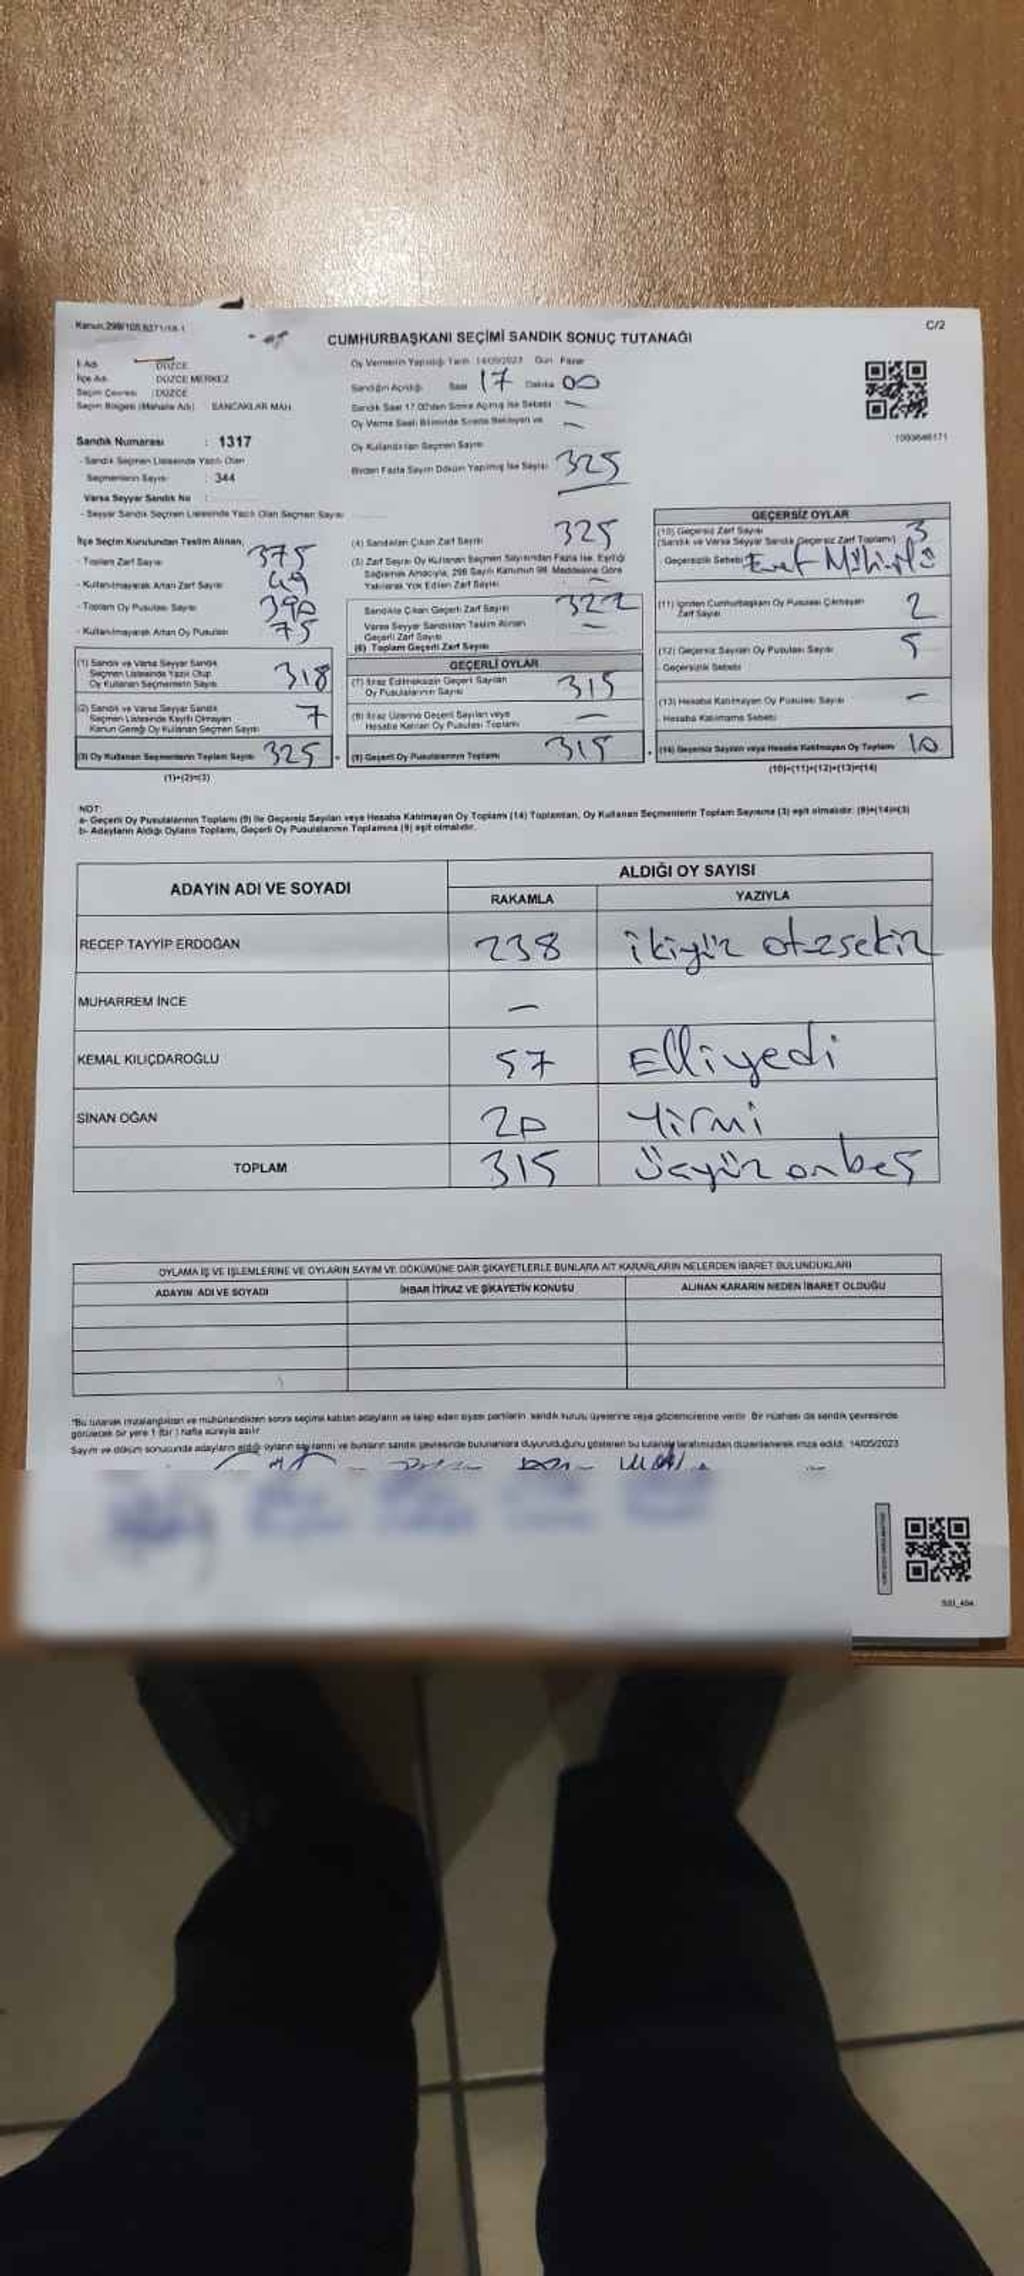 Kanun:298/105,6271/18-1
C/2
CUMHURBAŞKANI SEÇİMİ SANDIK SONUÇ TUTANAĞI
İl Adı : DÜZCE
İlçe Adı : DÜZCE MERKEZ
Seçim Çevresi : DÜZCE
Seçim Bölgesi (Mahalle Adı) : SANCAKLAR MAH.
Sandık Numarası : 1317
- Sandık Seçmen Listesinde Yazılı Olan
Seçmenlerin Sayısı : 344
Varsa Seyyar Sandık No :
- Seyyar Sandık Seçmen Listesinde Yazılı Olan Seçmen Sayısı
Oy Vermenin Yapıldığı Tarih 14/05/2023 Gün Pazar
Sandığın Açıldığı Saat 17 Dakika 00
Sandık Saat 17.00'den Sonra Açılmış İse Sebebi : —
Oy Verme Saati Bitiminde Sırada Bekleyen ve —
Oy Kullandırılan Seçmen Sayısı
Birden Fazla Sayım Döküm Yapılmış İse Sayısı 325
1003646171
İlçe Seçim Kurulundan Teslim Alınan,
- Toplam Zarf Sayısı 375
- Kullanılmayarak Artan Zarf Sayısı 49
- Toplam Oy Pusulası Sayısı 390
- Kullanılmayarak Artan Oy Pusulası 75
(1) Sandık ve Varsa Seyyar Sandık
Seçmen Listesinde Yazılı Olup
Oy Kullanan Seçmenlerin Sayısı 318
(2) Sandık ve Varsa Seyyar Sandık
Seçmen Listesinde Kayıtlı Olmayan
Kanun Gereği Oy Kullanan Seçmen Sayısı 7
(3) Oy Kullanan Seçmenlerin Toplam Sayısı 325
(1)+(2)=(3)
(4) Sandıktan Çıkan Zarf Sayısı 325
(5) Zarf Sayısı Oy Kullanan Seçmen Sayısından Fazla İse, Eşitliği
Sağlamak Amacıyla, 298 Sayılı Kanunun 98. Maddesine Göre
Yakılarak Yok Edilen Zarf Sayısı —
Sandıkta Çıkan Geçerli Zarf Sayısı 322
Varsa Seyyar Sandıktan Teslim Alınan
Geçerli Zarf Sayısı —
(6) Toplam Geçerli Zarf Sayısı
GEÇERLİ OYLAR
(7) İtiraz Edilmeksizin Geçerli Sayılan
Oy Pusulalarının Sayısı 315
(8) İtiraz Üzerine Geçerli Sayılan veya
Hesaba Katılan Oy Pusulası Toplamı —
(9) Geçerli Oy Pusulalarının Toplamı 315
GEÇERSİZ OYLAR
(10) Geçersiz Zarf Sayısı 3
(Sandık ve Varsa Seyyar Sandık Geçersiz Zarf Toplamı)
Geçersizlik Sebebi Evet Mühürlü
(11) İçinden Cumhurbaşkanı Oy Pusulası Çıkmayan
Zarf Sayısı 2
(12) Geçersiz Sayılan Oy Pusulası Sayısı 5
Geçersizlik Sebebi
(13) Hesaba Katılmayan Oy Pusulası Sayısı —
Hesaba Katılmama Sebebi
(14) Geçersiz Sayılan veya Hesaba Katılmayan Oy Toplamı 10
(10)+(11)+(12)+(13)=(14)
NOT:
a- Geçerli Oy Pusulalarının Toplamı (9) ile Geçersiz Sayılan veya Hesaba Katılmayan Oy Toplamı (14) Toplamları, Oy Kullanan Seçmenlerin Toplam Sayısına (3) eşit olmalıdır. (9)+(14)=(3)
b- Adayların Aldığı Oyların Toplamı, Geçerli Oy Pusulalarının Toplamına (9) eşit olmalıdır.
ADAYIN ADI VE SOYADI
ALDIĞI OY SAYISI
RAKAMLA YAZIYLA
RECEP TAYYİP ERDOĞAN 238 ikiyüz otuzsekiz
MUHARREM İNCE —
KEMAL KILIÇDAROĞLU 57 Elliyedi
SİNAN OĞAN 20 Yirmi
TOPLAM 315 üçyüz onbeş
OYLAMA İŞ VE İŞLEMLERİNE VE OYLARIN SAYIM VE DÖKÜMÜNE DAİR ŞİKAYETLERLE BUNLARA AİT KARARLARIN NELERDEN İBARET BULUNDUKLARI
ADAYIN ADI VE SOYADI İHBAR İTİRAZ VE ŞİKAYETİN KONUSU ALINAN KARARIN NEDEN İBARET OLDUĞU
*Bu tutanak imzalandıktan ve mühürlendikten sonra seçime katılan adayların ve talep eden siyasi partilerin sandık kurulu üyelerine veya gözlemcilerine verilir. Bir nüshası da sandık çevresinde
görülecek bir yere 1 (bir) hafta süreyle asılır.
Sayım ve döküm sonucunda adayların aldığı oyların sayılarını ve bunların sandık çevresinde bulunanlara duyurulduğunu gösteren bu tutanak tarafımızdan düzenlenerek imza edildi. 14/05/2023